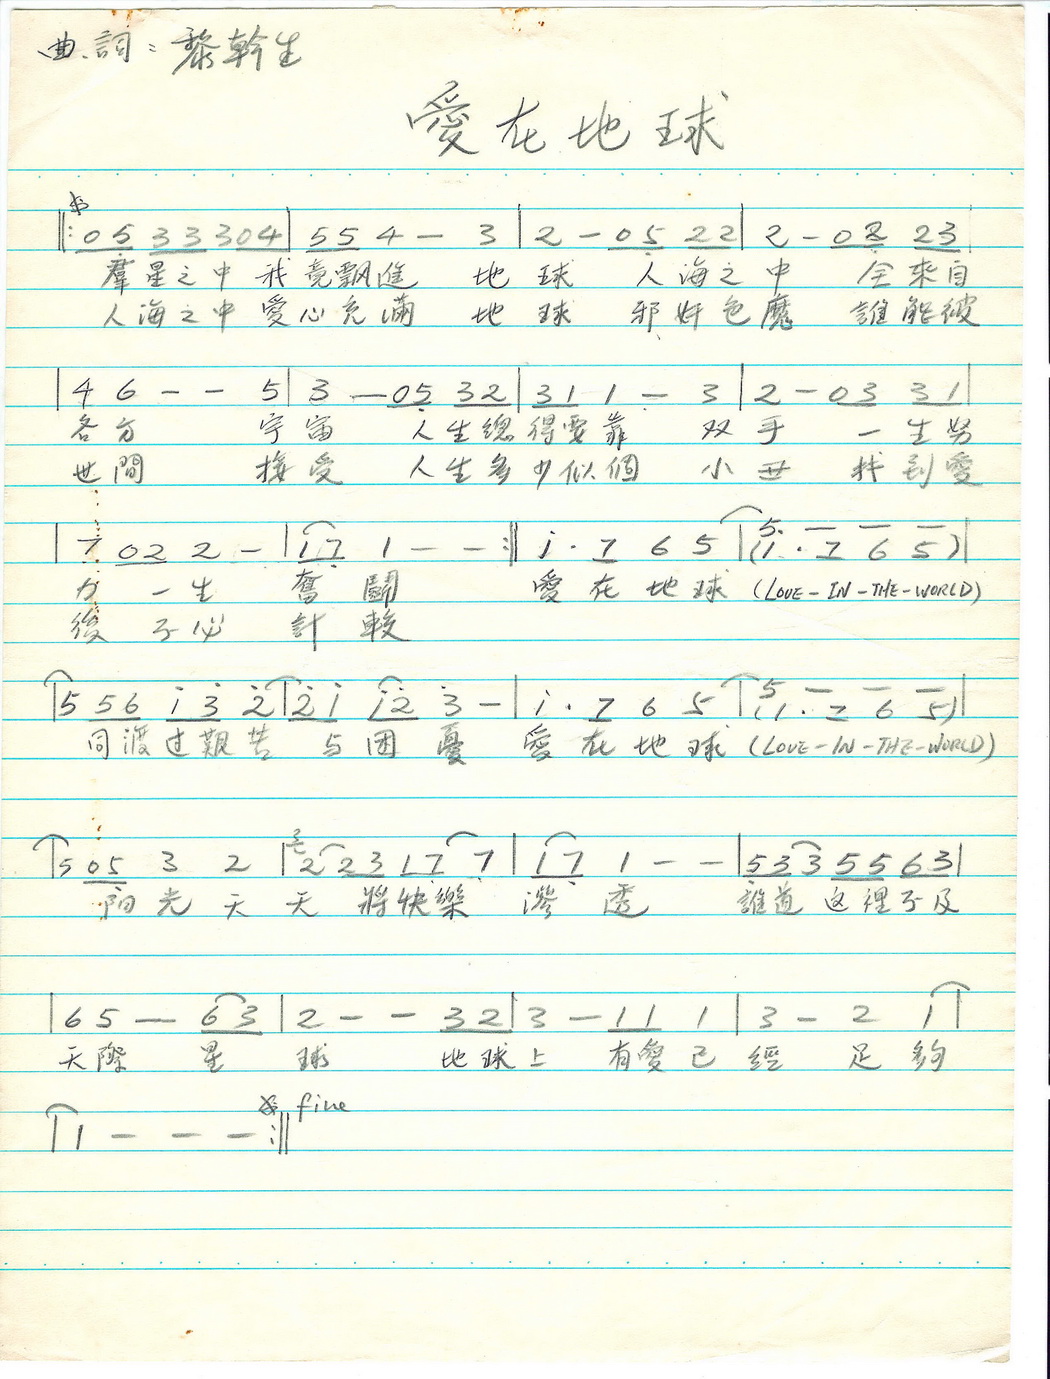 曲.詞：黎幹生
愛在地球
‖: 0 5 3 3 3 0 4 | 5 5 4 — 3 | 2 — 0 5 2 2 | 2 — 0 2 2 3 |
羣星之中 我竟飄進 地球 人海之中 全來自
人海之中 愛心充滿 地球 邪奸色魔 誰能彼
| 4 6 — — 5 | 3 — 0 5 3 2 | 3 1 1 — 3 | 2 — 0 3 3 1 |
各方 宇宙 人生總得要靠 双手 一生努
世間 接受 人生多少似個 小丑 找到愛
| 7 0 2 2 — | 1 7 1 — — :‖ i · 7 6 5 | 5 — — — (i · 7 6 5) |
力 一生 奮鬪 愛在地球 (LOVE-IN-THE-WORLD)
後 不必 計較
| 5 5 6 i 3 2 | 2 i i 2 3 — | i · 7 6 5 | 5 — — — (i · 7 6 5) |
同渡过艱苦 与困憂 愛在地球 (LOVE-IN-THE-WORLD)
| 5 0 5 3 2 | 2 2 3 1 7 7 | 1 7 1 — — | 5 3 3 5 5 6 3 |
阳光天天 將快樂 滲透 誰道这裡不及
| 6 5 — 6 3 | 2 — — 3 2 | 3 — 1 1 1 | 3 — 2 1 |
天際星球 地球上 有愛已經足夠
| 1 — — — :‖ fine